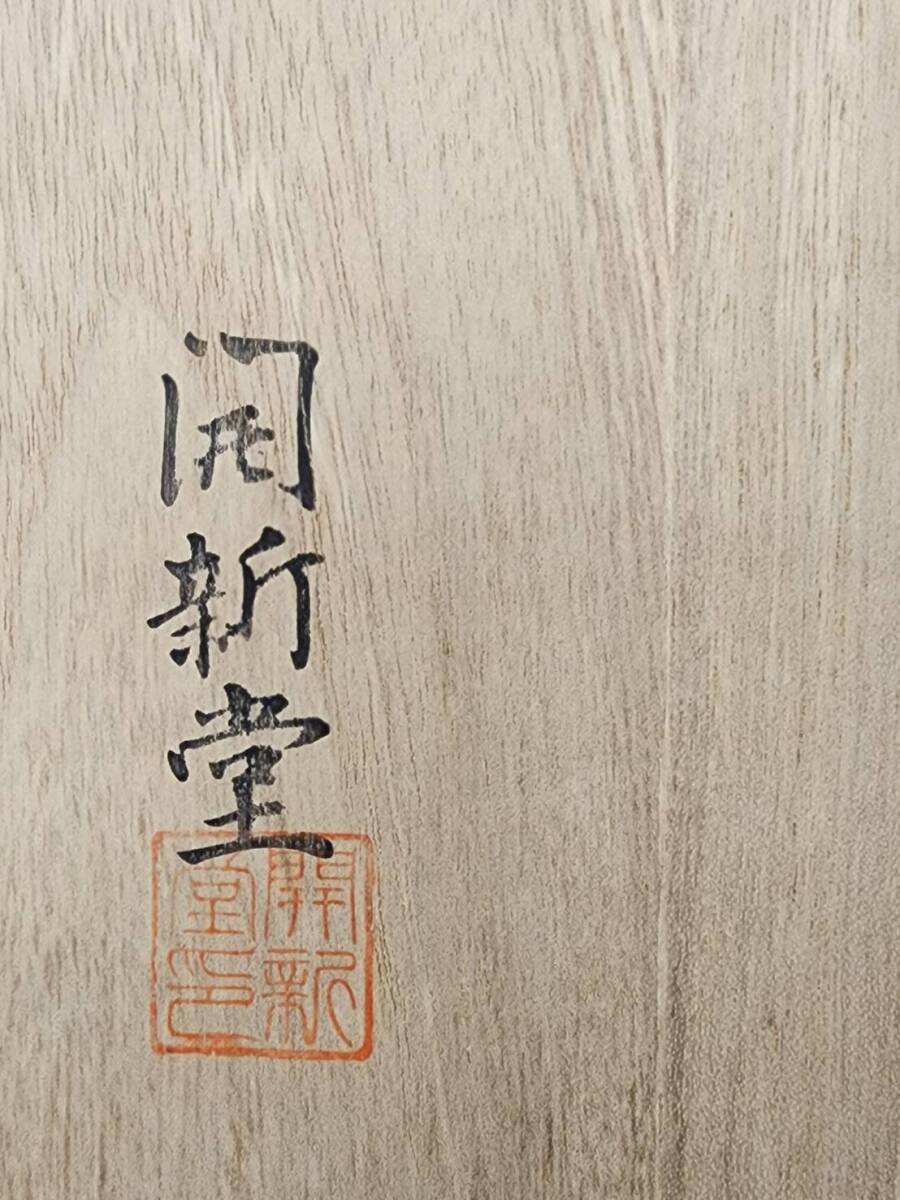 開新堂
開新
堂印